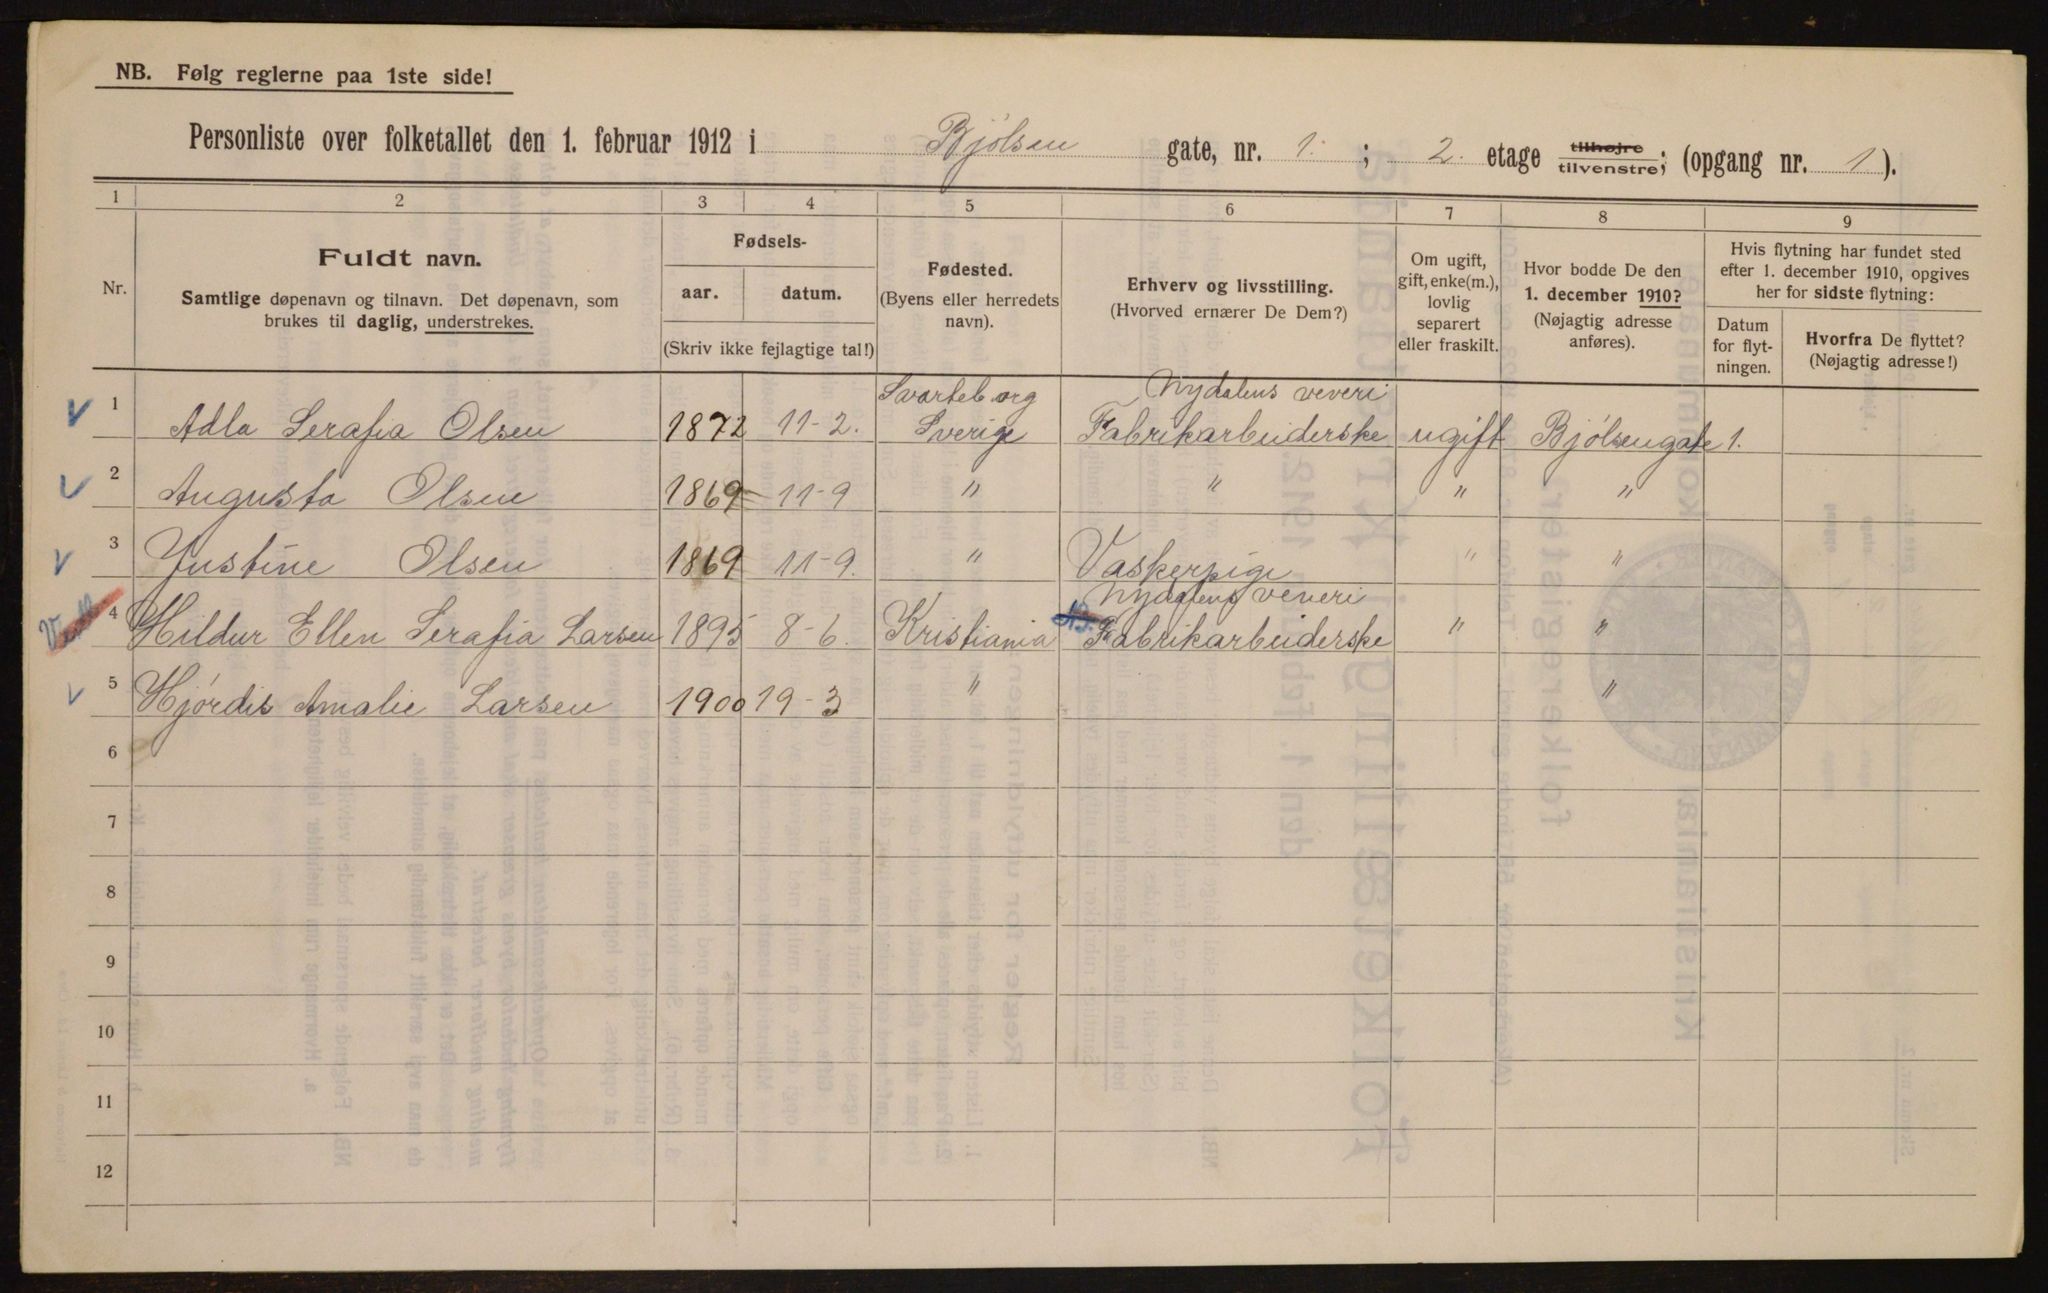 NB. Følg reglerne paa 1ste side!
Personliste over folketallet den 1. februar 1912 i Bjølsen gate, nr. 1. ; 2. etage tilhøjre tilvenstre; (opgang nr. 1).
1 2 3 4 5 6 7 8 9
Nr.
Fuldt navn.
Samtlige døpenavn og tilnavn. Det døpenavn, som
brukes til daglig, understrekes.
Fødsels-
aar. datum.
(Skriv ikke fejlagtige tal!)
Fødested.
(Byens eller herredets
navn).
Erhverv og livsstilling.
(Hvorved ernærer De Dem?)
Om ugift,
gift, enke(m.),
lovlig
separert
eller fraskilt.
Hvor bodde De den
1. december 1910?
(Nøjagtig adresse
anføres).
Hvis flytning har fundet sted
efter 1. december 1910, opgives
her for sidste flytning:
Datum
for flyt-
ningen.
Hvorfra De flyttet?
(Nøjagtig adresse!)
Svarteborg Nydalens veveri
1 Adla Serafia Olsen 1872 11-2. Sverige Fabrikarbeiderske ugift Bjølsengate 1.
2 Augusta Olsen 1869 11-9 " " " "
3 Justine Olsen 1869 11-9. " Vaskerpige " "
Nydalens veveri
4 Hildur Ellen Serafia Larsen 1895 8-6. Kristiania Fabrikarbeiderske " "
5 Hjørdis Amalie Larsen 1900 19-3 " "
6
7
8
9
10
11
12